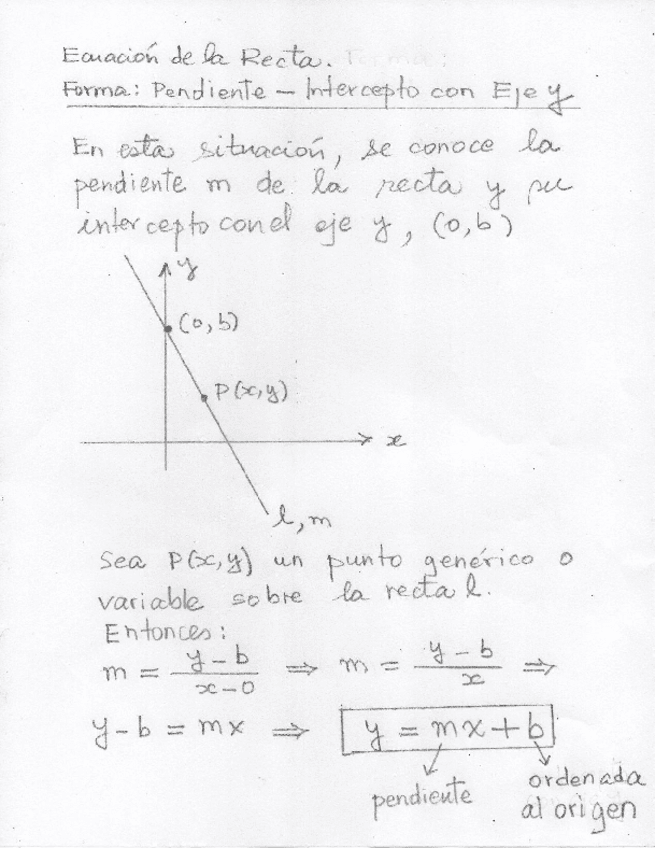 Ecuación de la Recta.
Forma: Pendiente – Intercepto con Eje y
En esta situación, se conoce la
pendiente m de la recta y su
intercepto con el eje y, (0,b)
y
(0,b)
P(x,y)
x
l, m
Sea P(x,y) un punto genérico o
variable sobre la recta l.
Entonces:
m = (y – b)/(x – 0) ⇒ m = (y – b)/x ⇒
y – b = mx ⇒ y = mx + b
pendiente ordenada
al origen